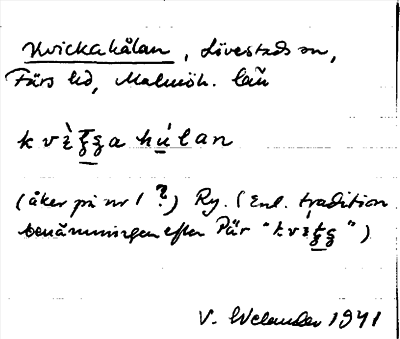 Kvickahålan, Lövestads sn,
Färs hd, Malmöh. län
kvὲʒ̱ʒa hú̱lan
(åker på nr 1?) Ry. (Enl. tradition
benämningen efter Pär "kvɛʒ̱ʒ")
V. Welander 1941